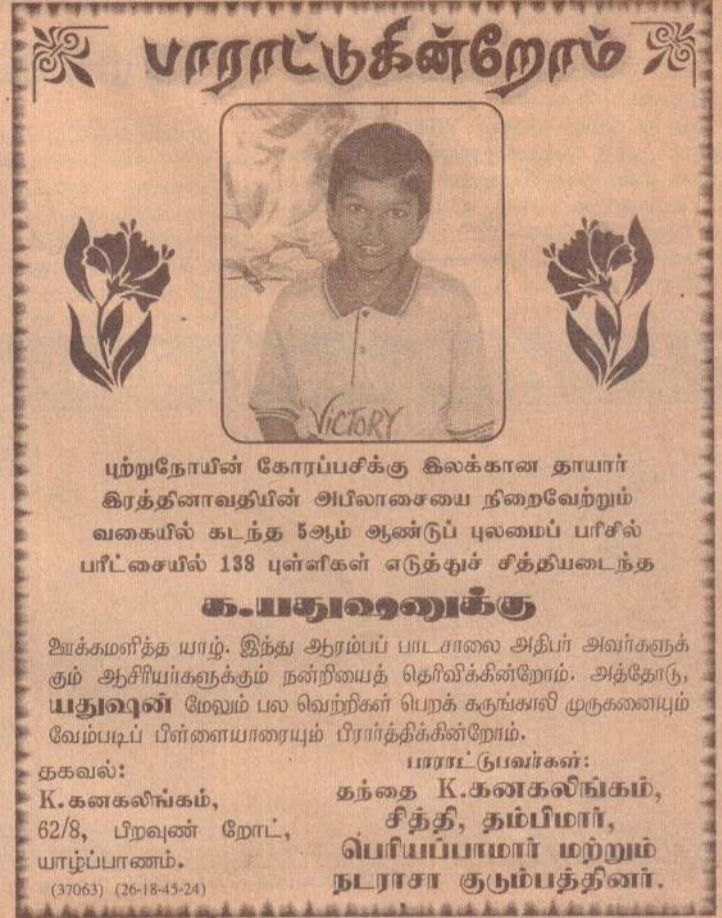 பாராட்டுகின்றோம்
VICTORY
புற்றுநோயின் கோரப்பசிக்கு இலக்கான தாயார்
இரத்தினாவதியின் அபிலாசையை நிறைவேற்றும்
வகையில் கடந்த 5ஆம் ஆண்டுப் புலமைப் பரிசில்
பரீட்சையில் 138 புள்ளிகள் எடுத்துச் சித்தியடைந்த
க.யதுஷனுக்கு
ஊக்கமளித்த யாழ். இந்து ஆரம்பப் பாடசாலை அதிபர் அவர்களுக்
கும் ஆசிரியர்களுக்கும் நன்றியைத் தெரிவிக்கின்றோம். அத்தோடு,
யதுஷன் மேலும் பல வெற்றிகள் பெறக் கருங்காலி முருகனையும்
வேம்படிப் பிள்ளையாரையும் பிரார்த்திக்கின்றோம்.
தகவல்:
K.கனகலிங்கம்,
62/8, பிறவுண் றோட்,
யாழ்ப்பாணம்.
(37063) (26-18-45-24)
பாராட்டுபவர்கள்:
தந்தை K.கனகலிங்கம்,
சித்தி, தம்பிமார்,
பெரியப்பாமார் மற்றும்
நடராசா குடும்பத்தினர்.